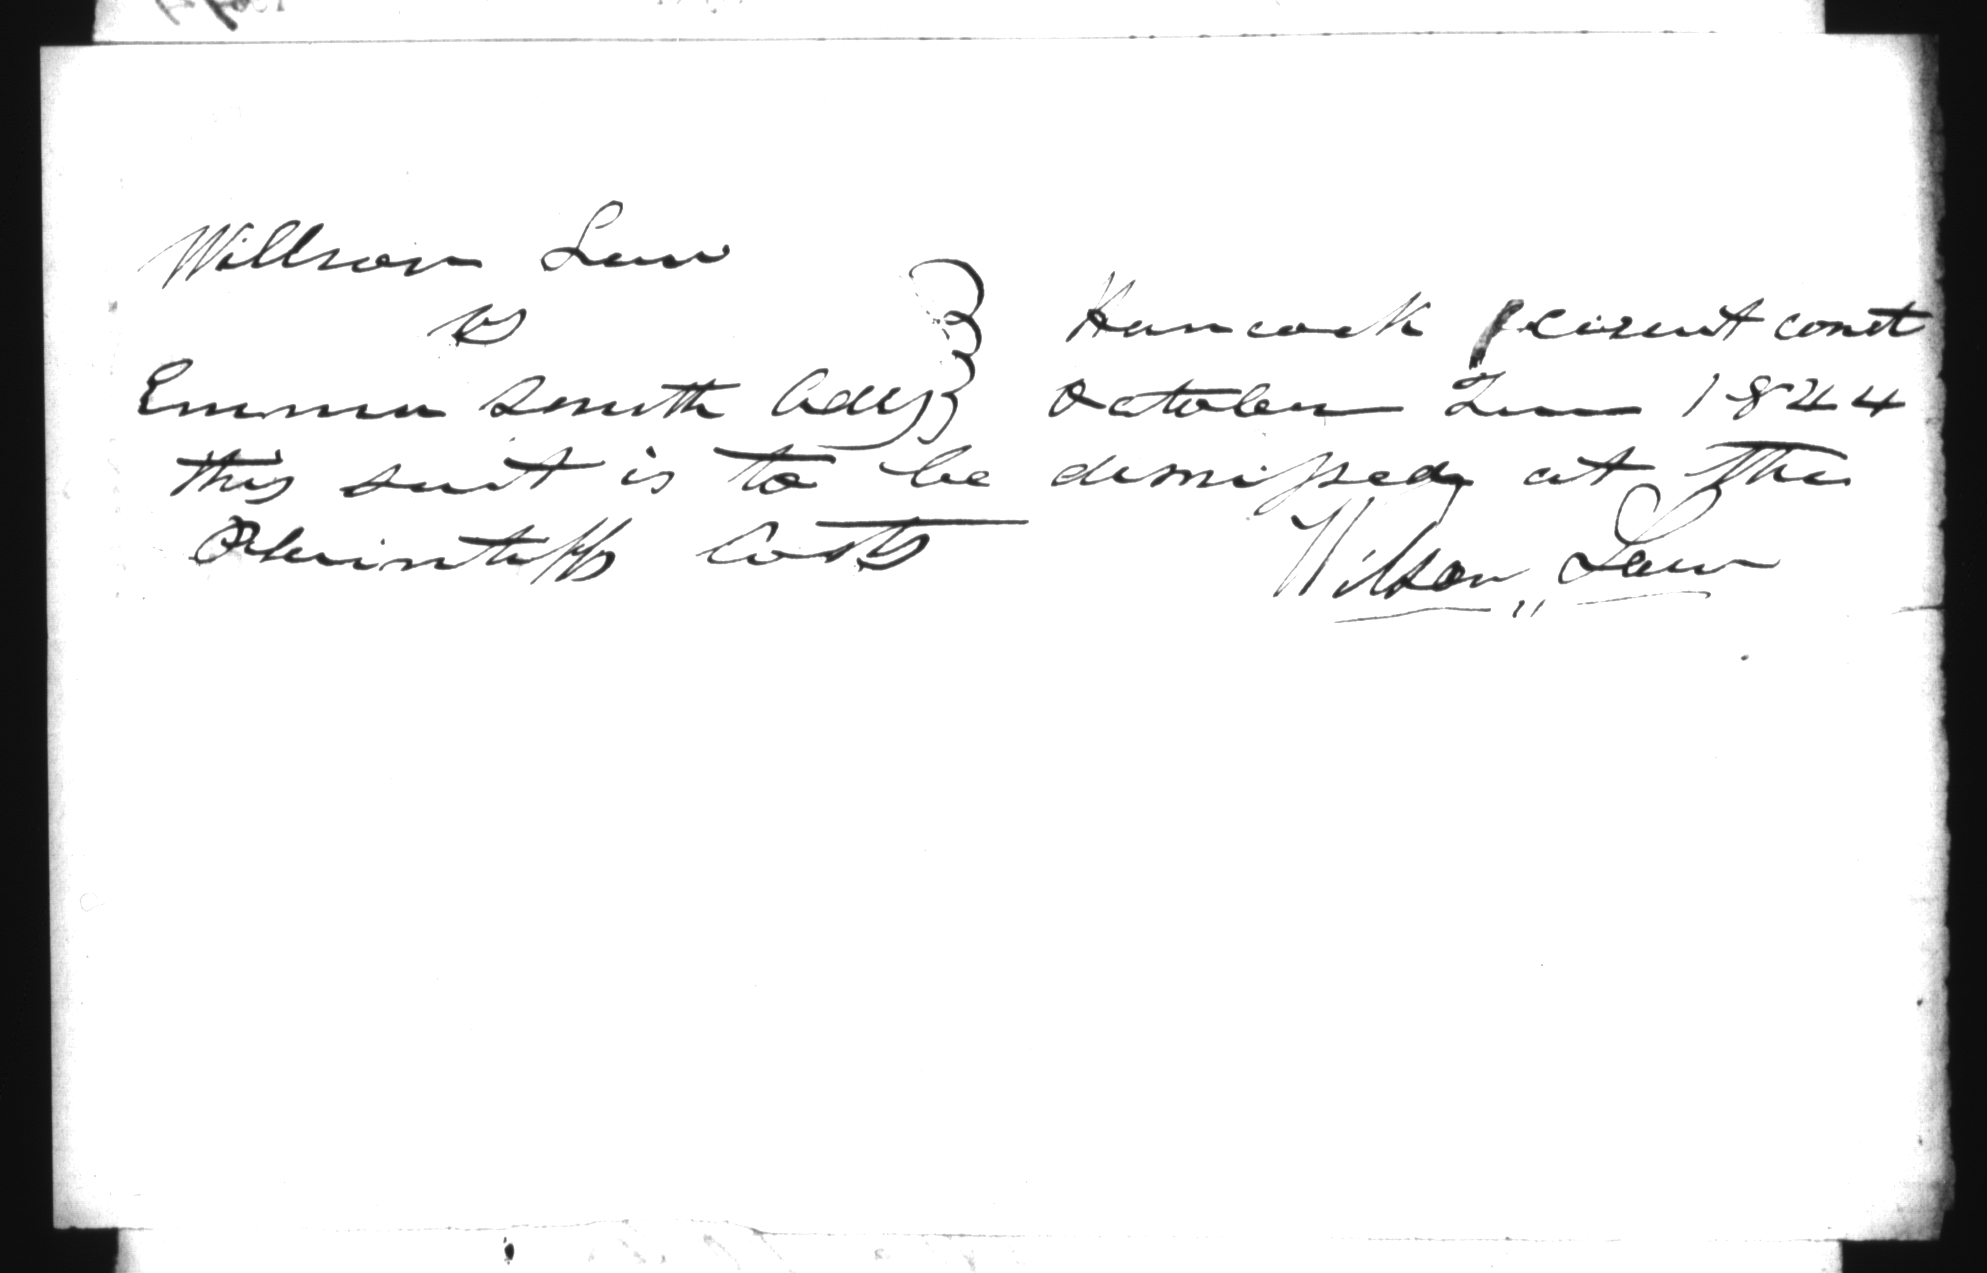 Willson Law
vs
Hancock circut court
Emma Smith Adm
October Term 1844
this suit is to be dismissed at the
Plaintiffs Costs
Wilson Law